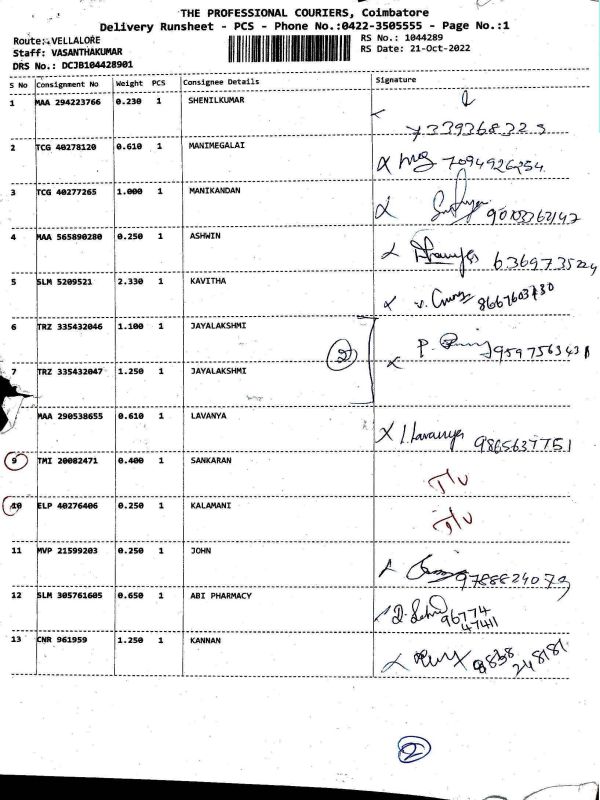 THE PROFESSIONAL COURIERS, Coimbatore
Delivery Runsheet - PCS - Phone No.:0422-3505555 - Page No.:1
Route: VELLALORE
RS No.: 1044289
Staff: VASANTHAKUMAR
RS Date: 21-Oct-2022
DRS No.: DCJB104428901
S No Consignment No Weight PCS Consignee Details Signature
1 MAA 294223766 0.230 1 SHENILKUMAR
2 TCG 40278120 0.610 1 MANIMEGALAI 7094926254
3 TCG 40277265 1.000 1 MANIKANDAN
4 MAA 565890280 0.250 1 ASHWIN
5 SLM 5209521 2.330 1 KAVITHA
6 TRZ 335432046 1.100 1 JAYALAKSHMI
2
7 TRZ 335432047 1.250 1 JAYALAKSHMI
MAA 290538655 0.610 1 LAVANYA
9865637751
9 TMI 20082471 0.400 1 SANKARAN
10 ELP 40276406 0.250 1 KALAMANI
11 MVP 21599203 0.250 1 JOHN
9788824079
12 SLM 305761605 0.650 1 ABI PHARMACY
96774
47411
13 CNR 961959 1.250 1 KANNAN
2